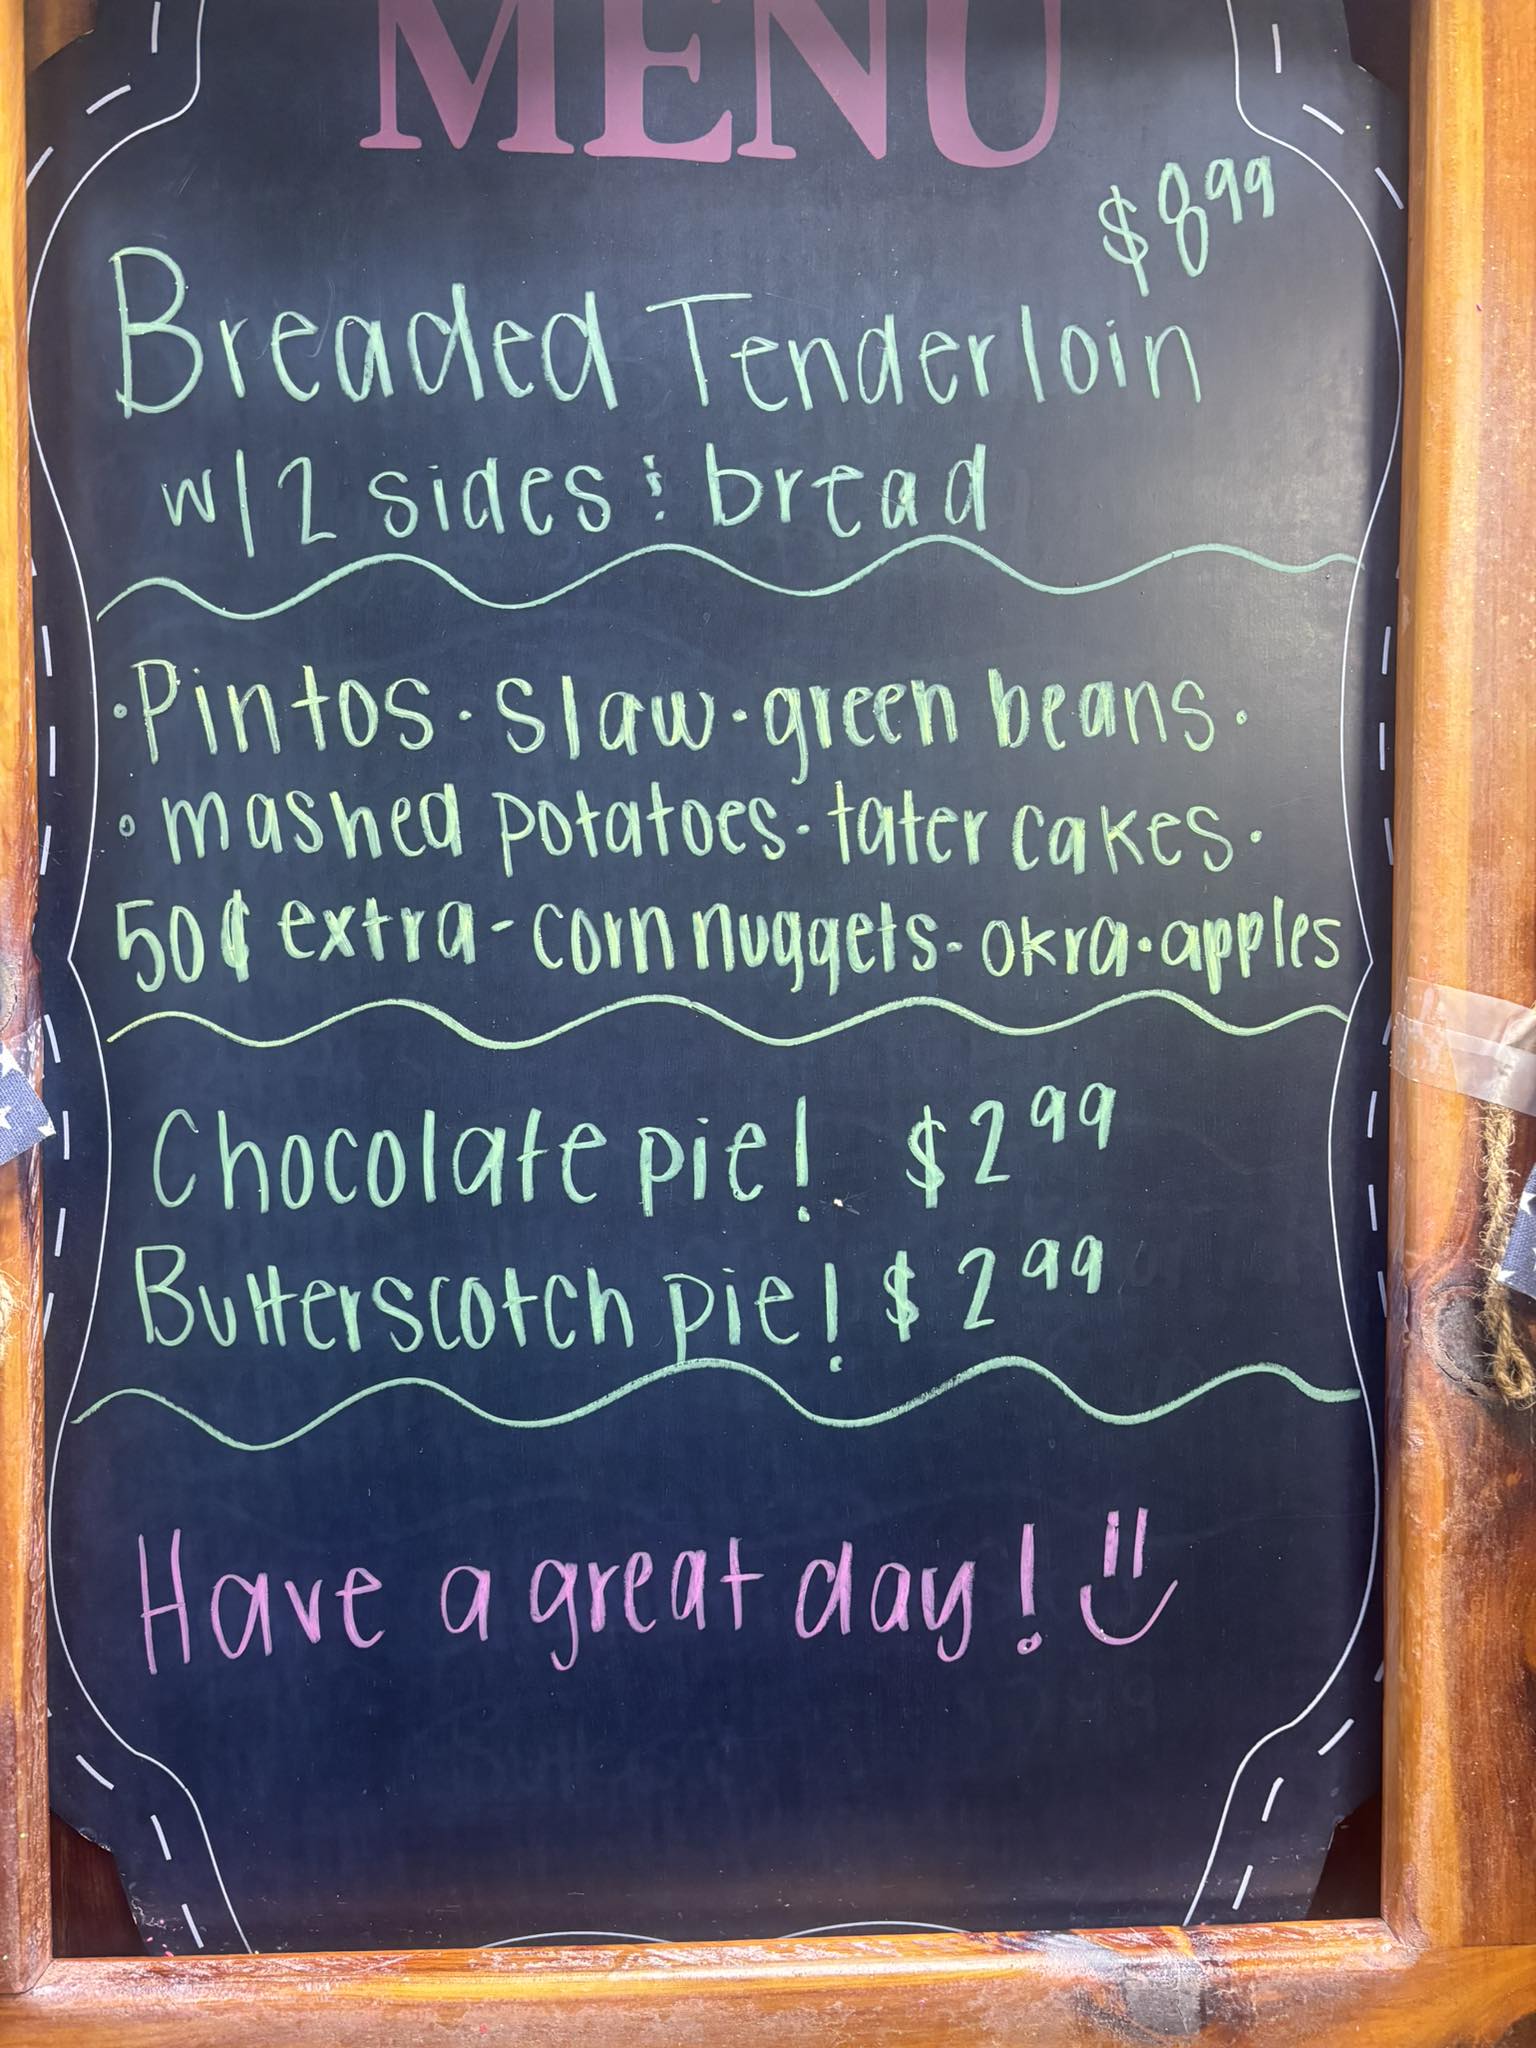 MENU
$8.99
Breaded Tenderloin
w/ 2 sides & bread
·Pintos · slaw · green beans ·
· mashed potatoes · tater cakes ·
50¢ extra - corn nuggets - okra · apples
Chocolate pie! $2.99
Butterscotch pie! $2.99
Have a great day!